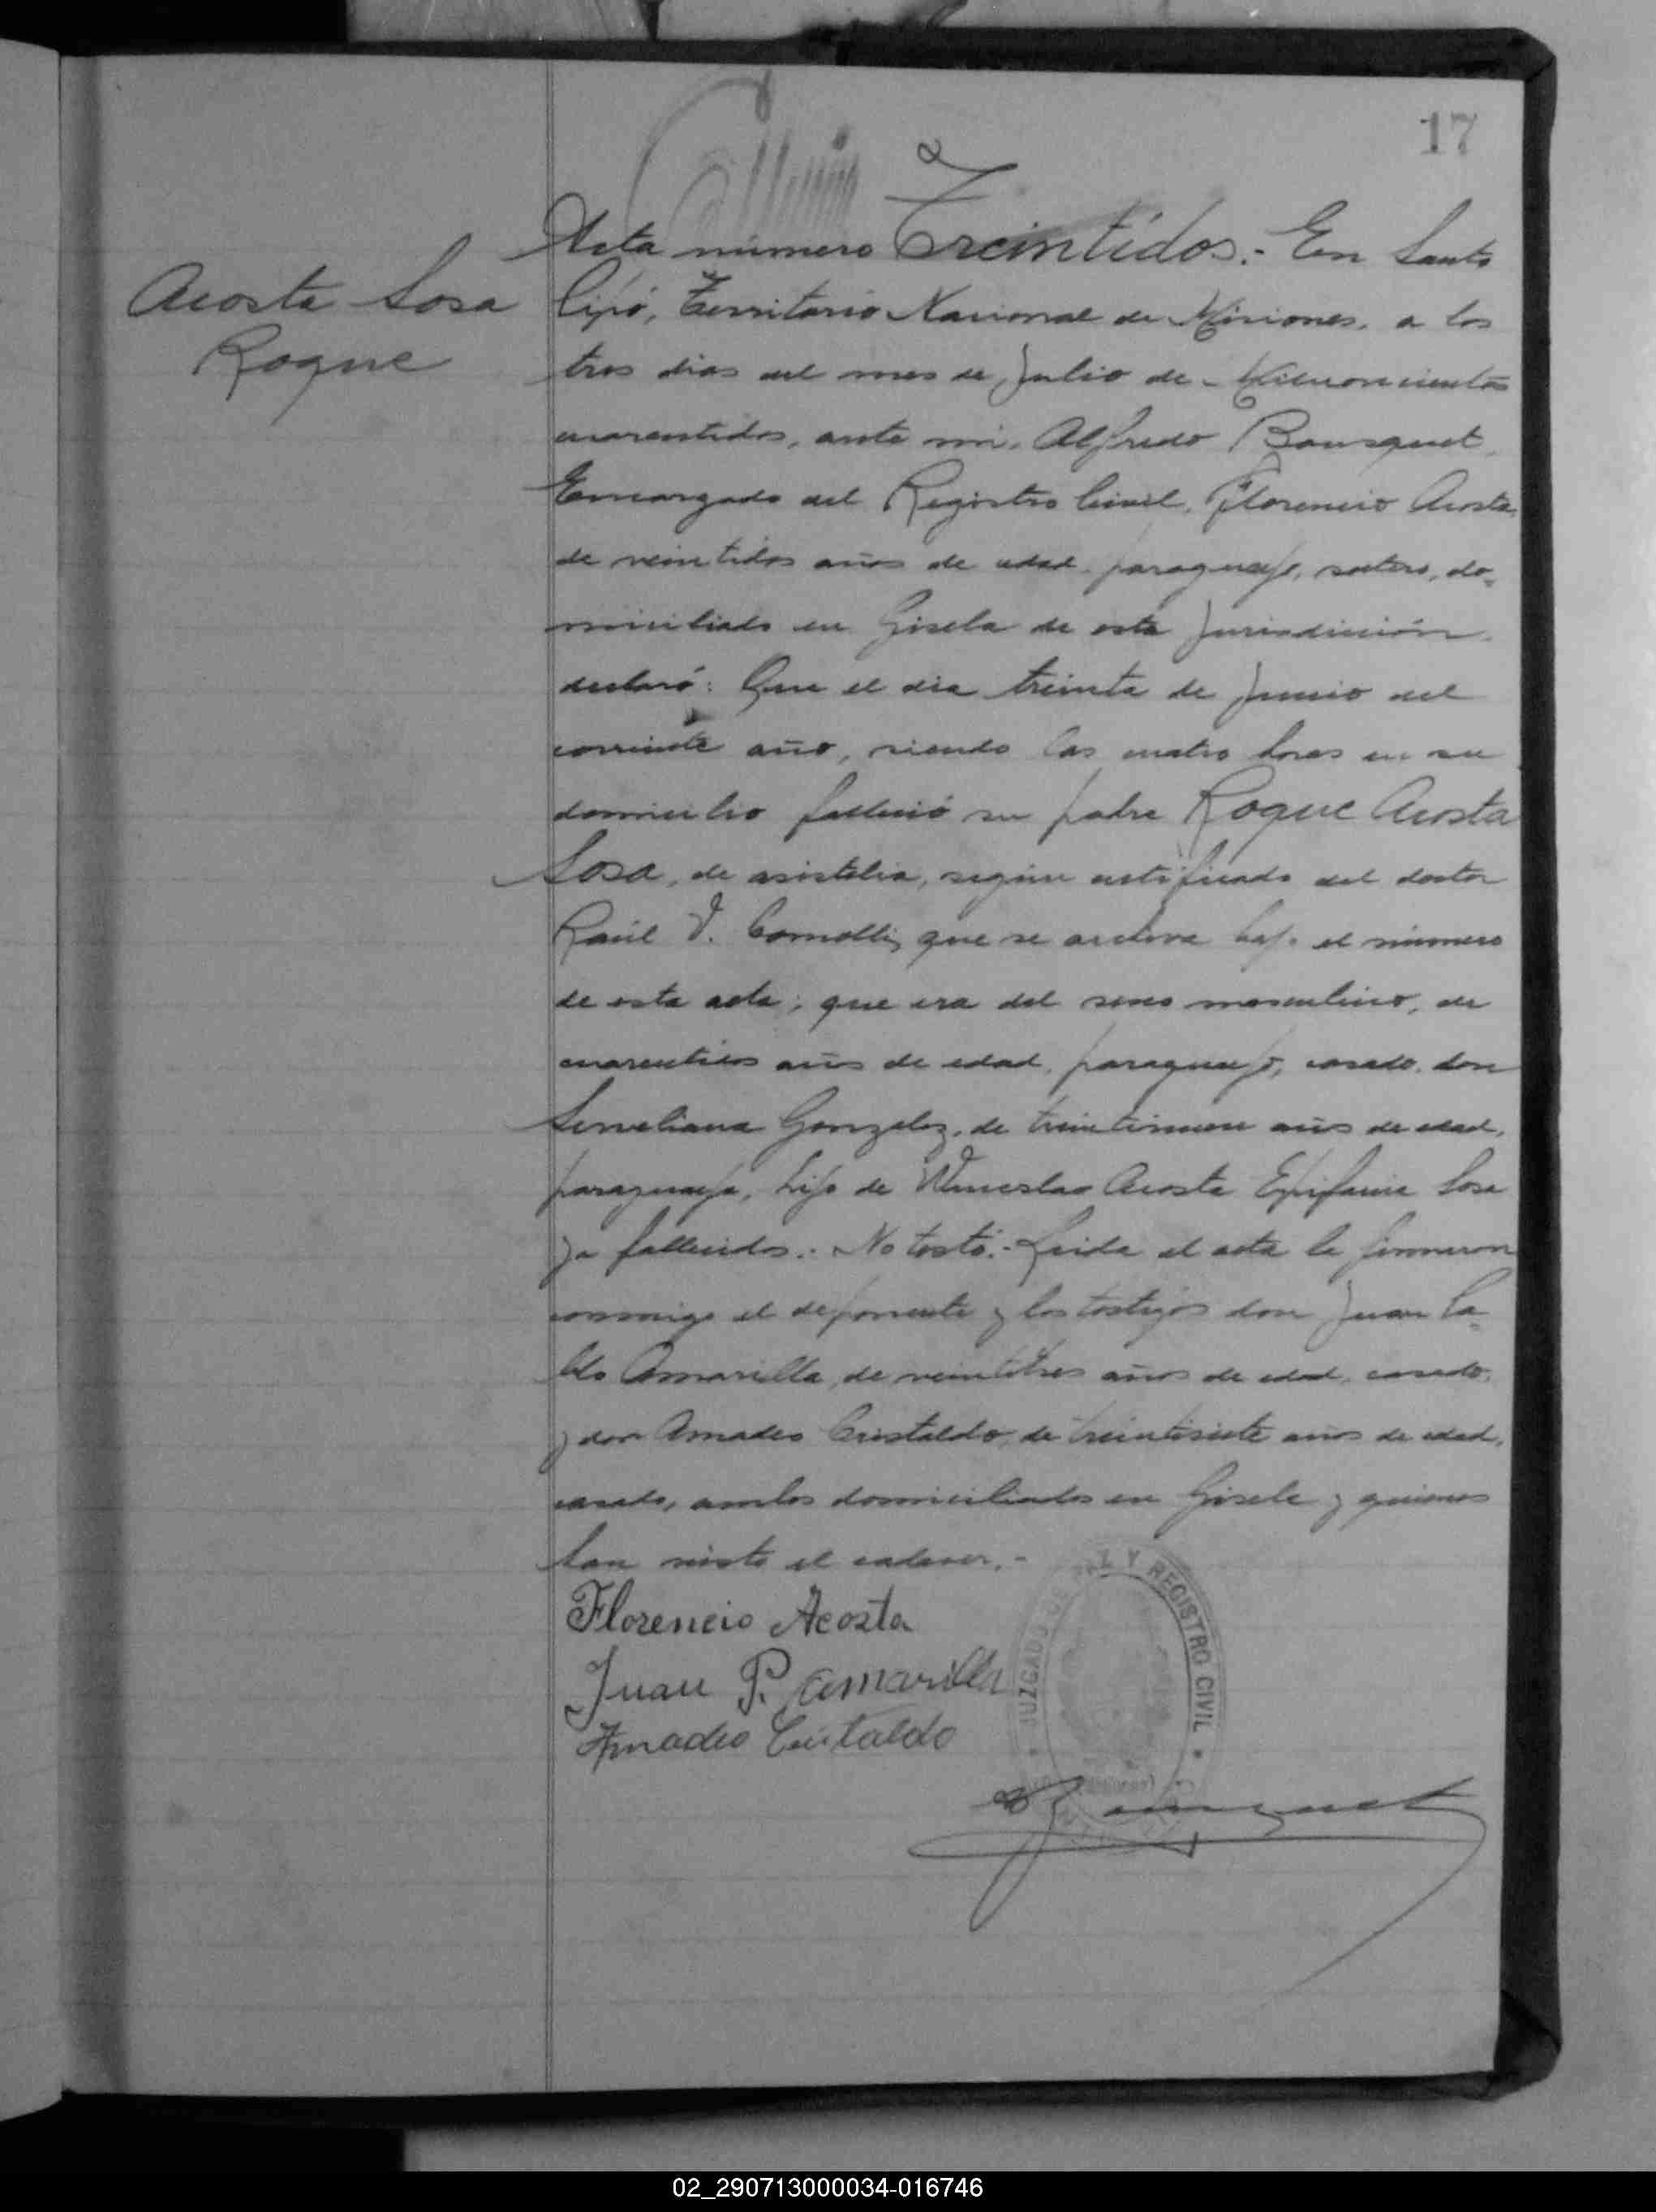 17
Acta número Treintidos.- En Santo
Acosta Sosa
Roque
Pipó, Territorio Nacional de Misiones, a los
tres dias del mes de Julio de Milnovecientos
cuarentidos, ante mi, Alfredo Bousquet,
Encargado del Registro Civil, Florencio Acosta,
de veintidos años de edad, paraguayo, soltero, do-
miciliado en Gisela de esta jurisdicción
declaró: Que el dia treinta de Junio del
corriente año, siendo las cuatro horas en su
domicilio falleció su padre Roque Acosta
Sosa, de asistolia, según certificado del doctor
Raúl V. Comolli, que se archiva bajo el número
de esta acta; que era del sexo masculino, de
años de edad, paraguayo, casado con
Serveliana Gonzalez, de treintinueve años de edad,
paraguaya, hijo de Wenceslao Acosta Epifania Sosa
ya fallecidos.- No testó.- Leida el acta la firmaron
conmigo el deponente y los testigos don Juan Pa-
blo Amarilla, de veintitres años de edad, casado,
y don Amadeo Cristaldo, de treintisiete años de edad,
casado, ambos domiciliados en Gisela y quienes
han visto el cadaver.-
Florencio Acosta
Juan P. Amarilla
Amadeo Cristaldo
JUZGADO DE PAZ Y REGISTRO CIVIL
A Bousquet
02_290713000034-016746